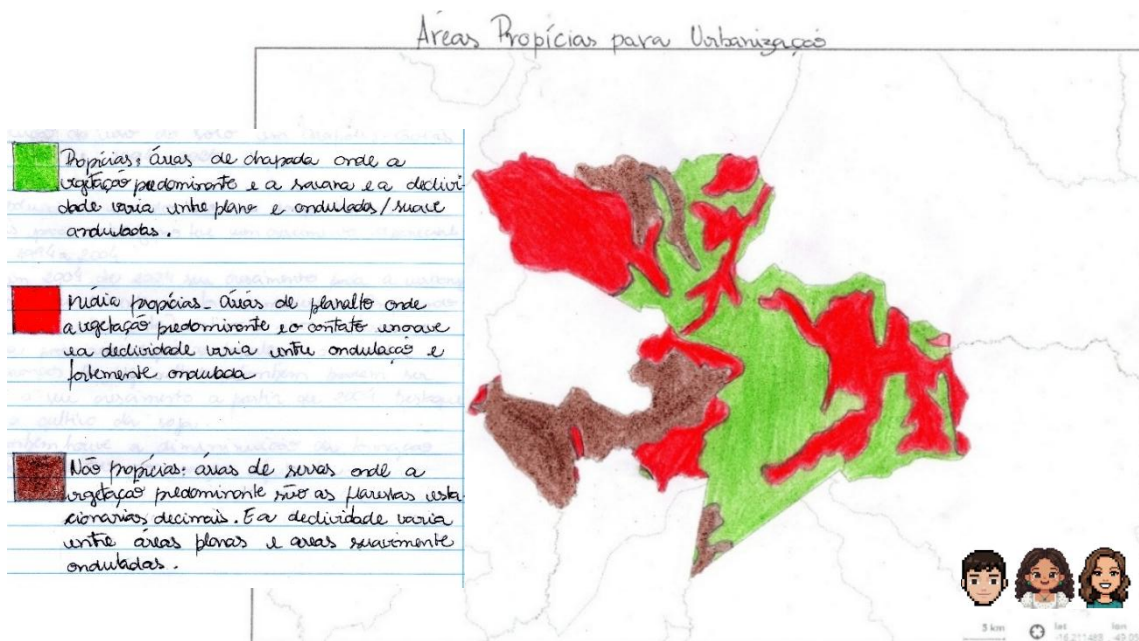 Áreas Propícias para Urbanização
Propícias: áreas de chapada onde a
vegetação predominante e a savana e a declivi-
dade varia entre plano e onduladas/suave
onduladas.
Média propícias - áreas de planalto onde
a vegetação predominante e o contato encrave
e a declividade varia entre ondulação e
fortemente ondulada
Não propícias: áreas de serras onde a
vegetação predominante são as florestas esta-
cionárias decimais. E a declividade varia
entre áreas planas e areas suavimente
onduladas.
5 km
lat
lon